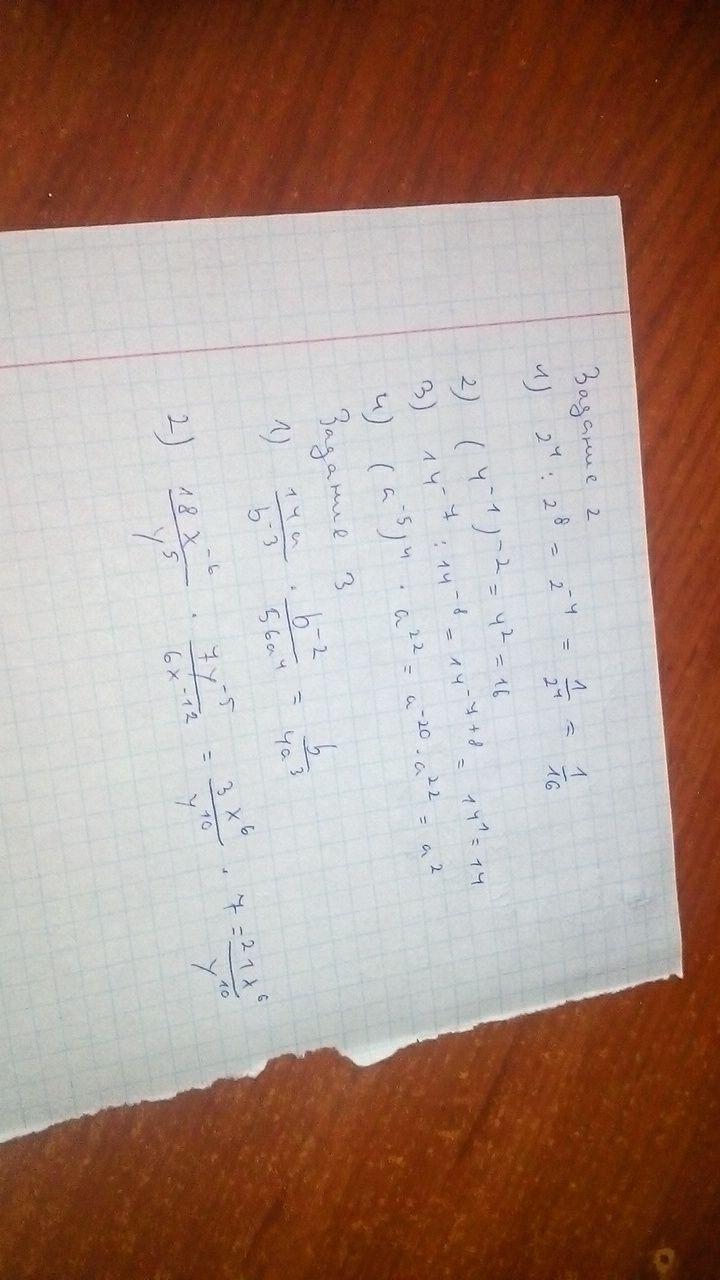 Задание 2
1) 2⁴ : 2⁸ = 2⁻⁴ = 1/2⁴ = 1/16
2) (4⁻¹)⁻² = 4² = 16
3) 14⁻⁷ : 14⁻⁸ = 14⁻⁷⁺⁸ = 14¹ = 14
4) (a⁻⁵)⁴ · a²² = a⁻²⁰ · a²² = a²
Задание 3
1) 14a/b⁻³ · b⁻²/56a⁴ = b/4a³
2) 18x⁻⁶/y⁵ · 7y⁻⁵/6x⁻¹² = 3x⁶/y¹⁰ · 7 = 21x⁶/y¹⁰